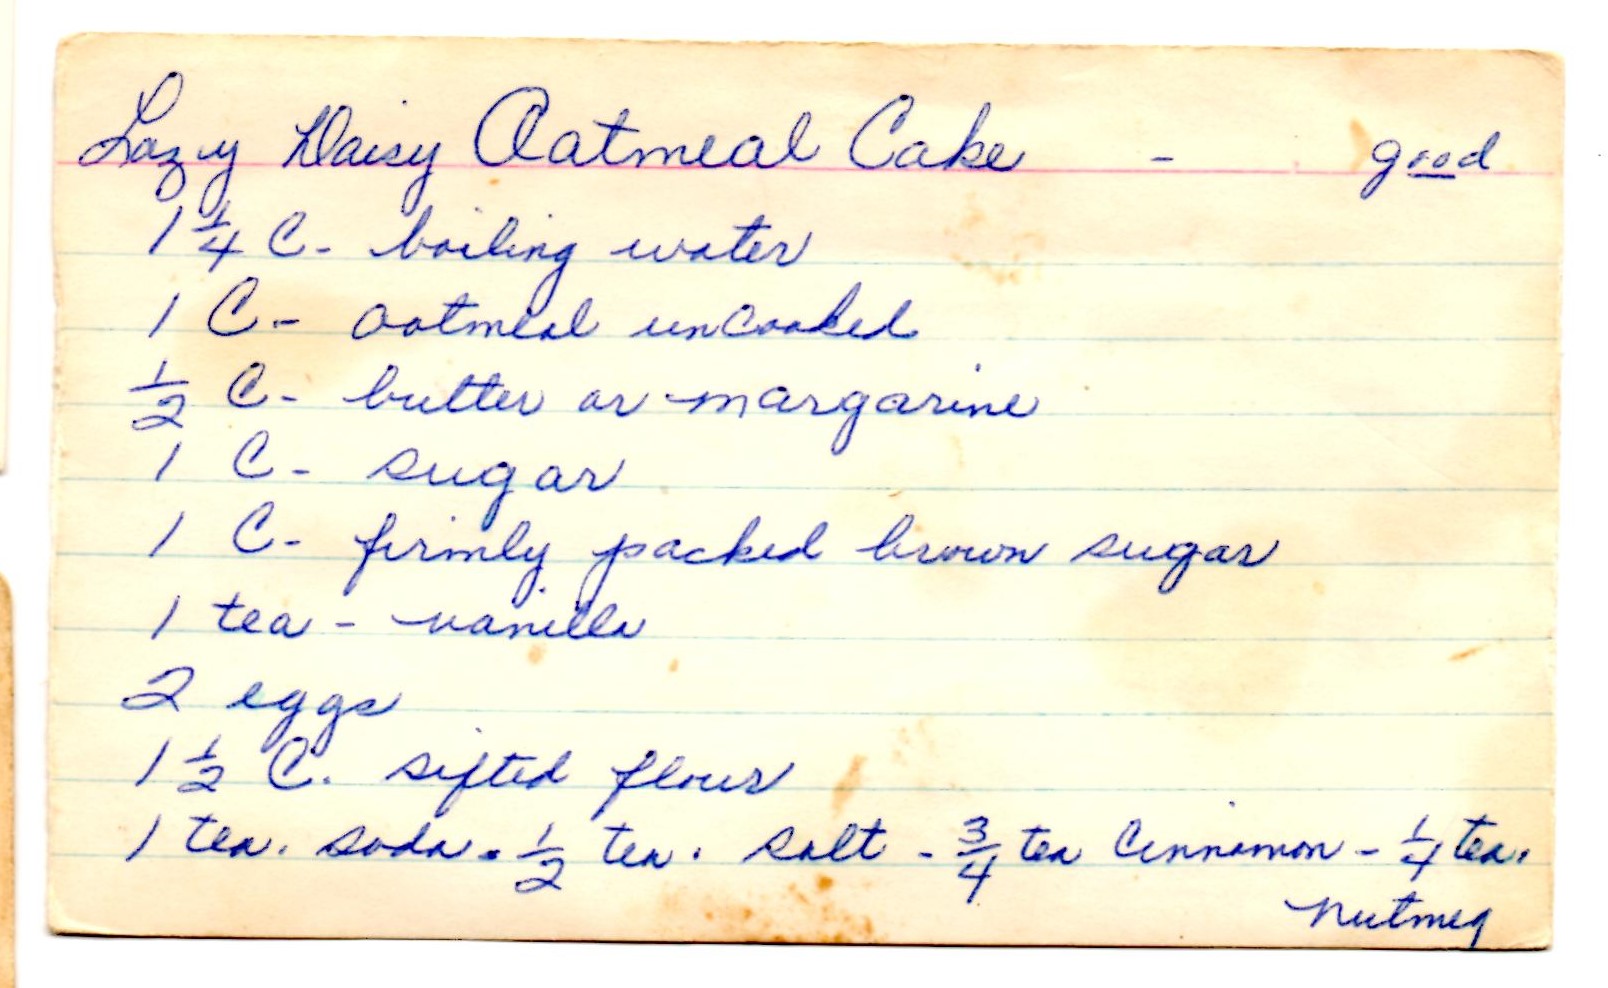 Lazy Daisy Oatmeal Cake - good
1 1/4 C- boiling water
1 C- oatmeal uncooked
1/2 C- butter or margarine
1 C- sugar
1 C- firmly packed brown sugar
1 tea - vanilla
2 eggs
1 1/2 C. sifted flour
1 tea. soda - 1/2 tea. salt - 3/4 tea Cinnamon - 1/4 tea.
nutmeg